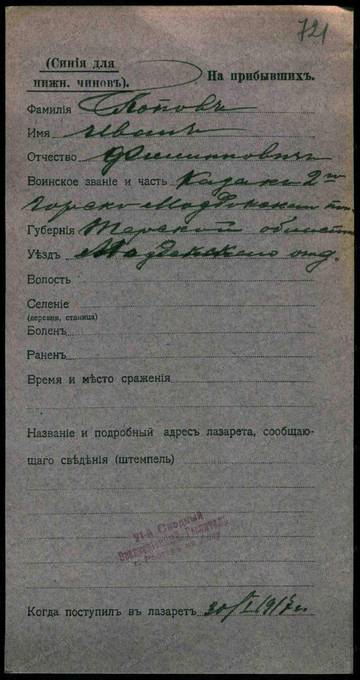 721
(Синія для
нижн. чиновъ).
На прибывшихъ.
Фамилія Поповъ
Имя Иванъ
Отчество Филипповичъ
Воинское званіе и часть Казакъ 2го
Горско Моздокскій
Губернія Терской области
Уѣздъ Моздокскаго отд.
Волость
Селеніе
(деревня, станица)
Боленъ
Раненъ
Время и мѣсто сраженія
Названіе и подробный адресъ лазарета, сообщаю-
щаго свѣдѣнія (штемпель)
Сводный
Эвакуаціонный
Когда поступилъ въ лазаретъ 30/I 1917 г.